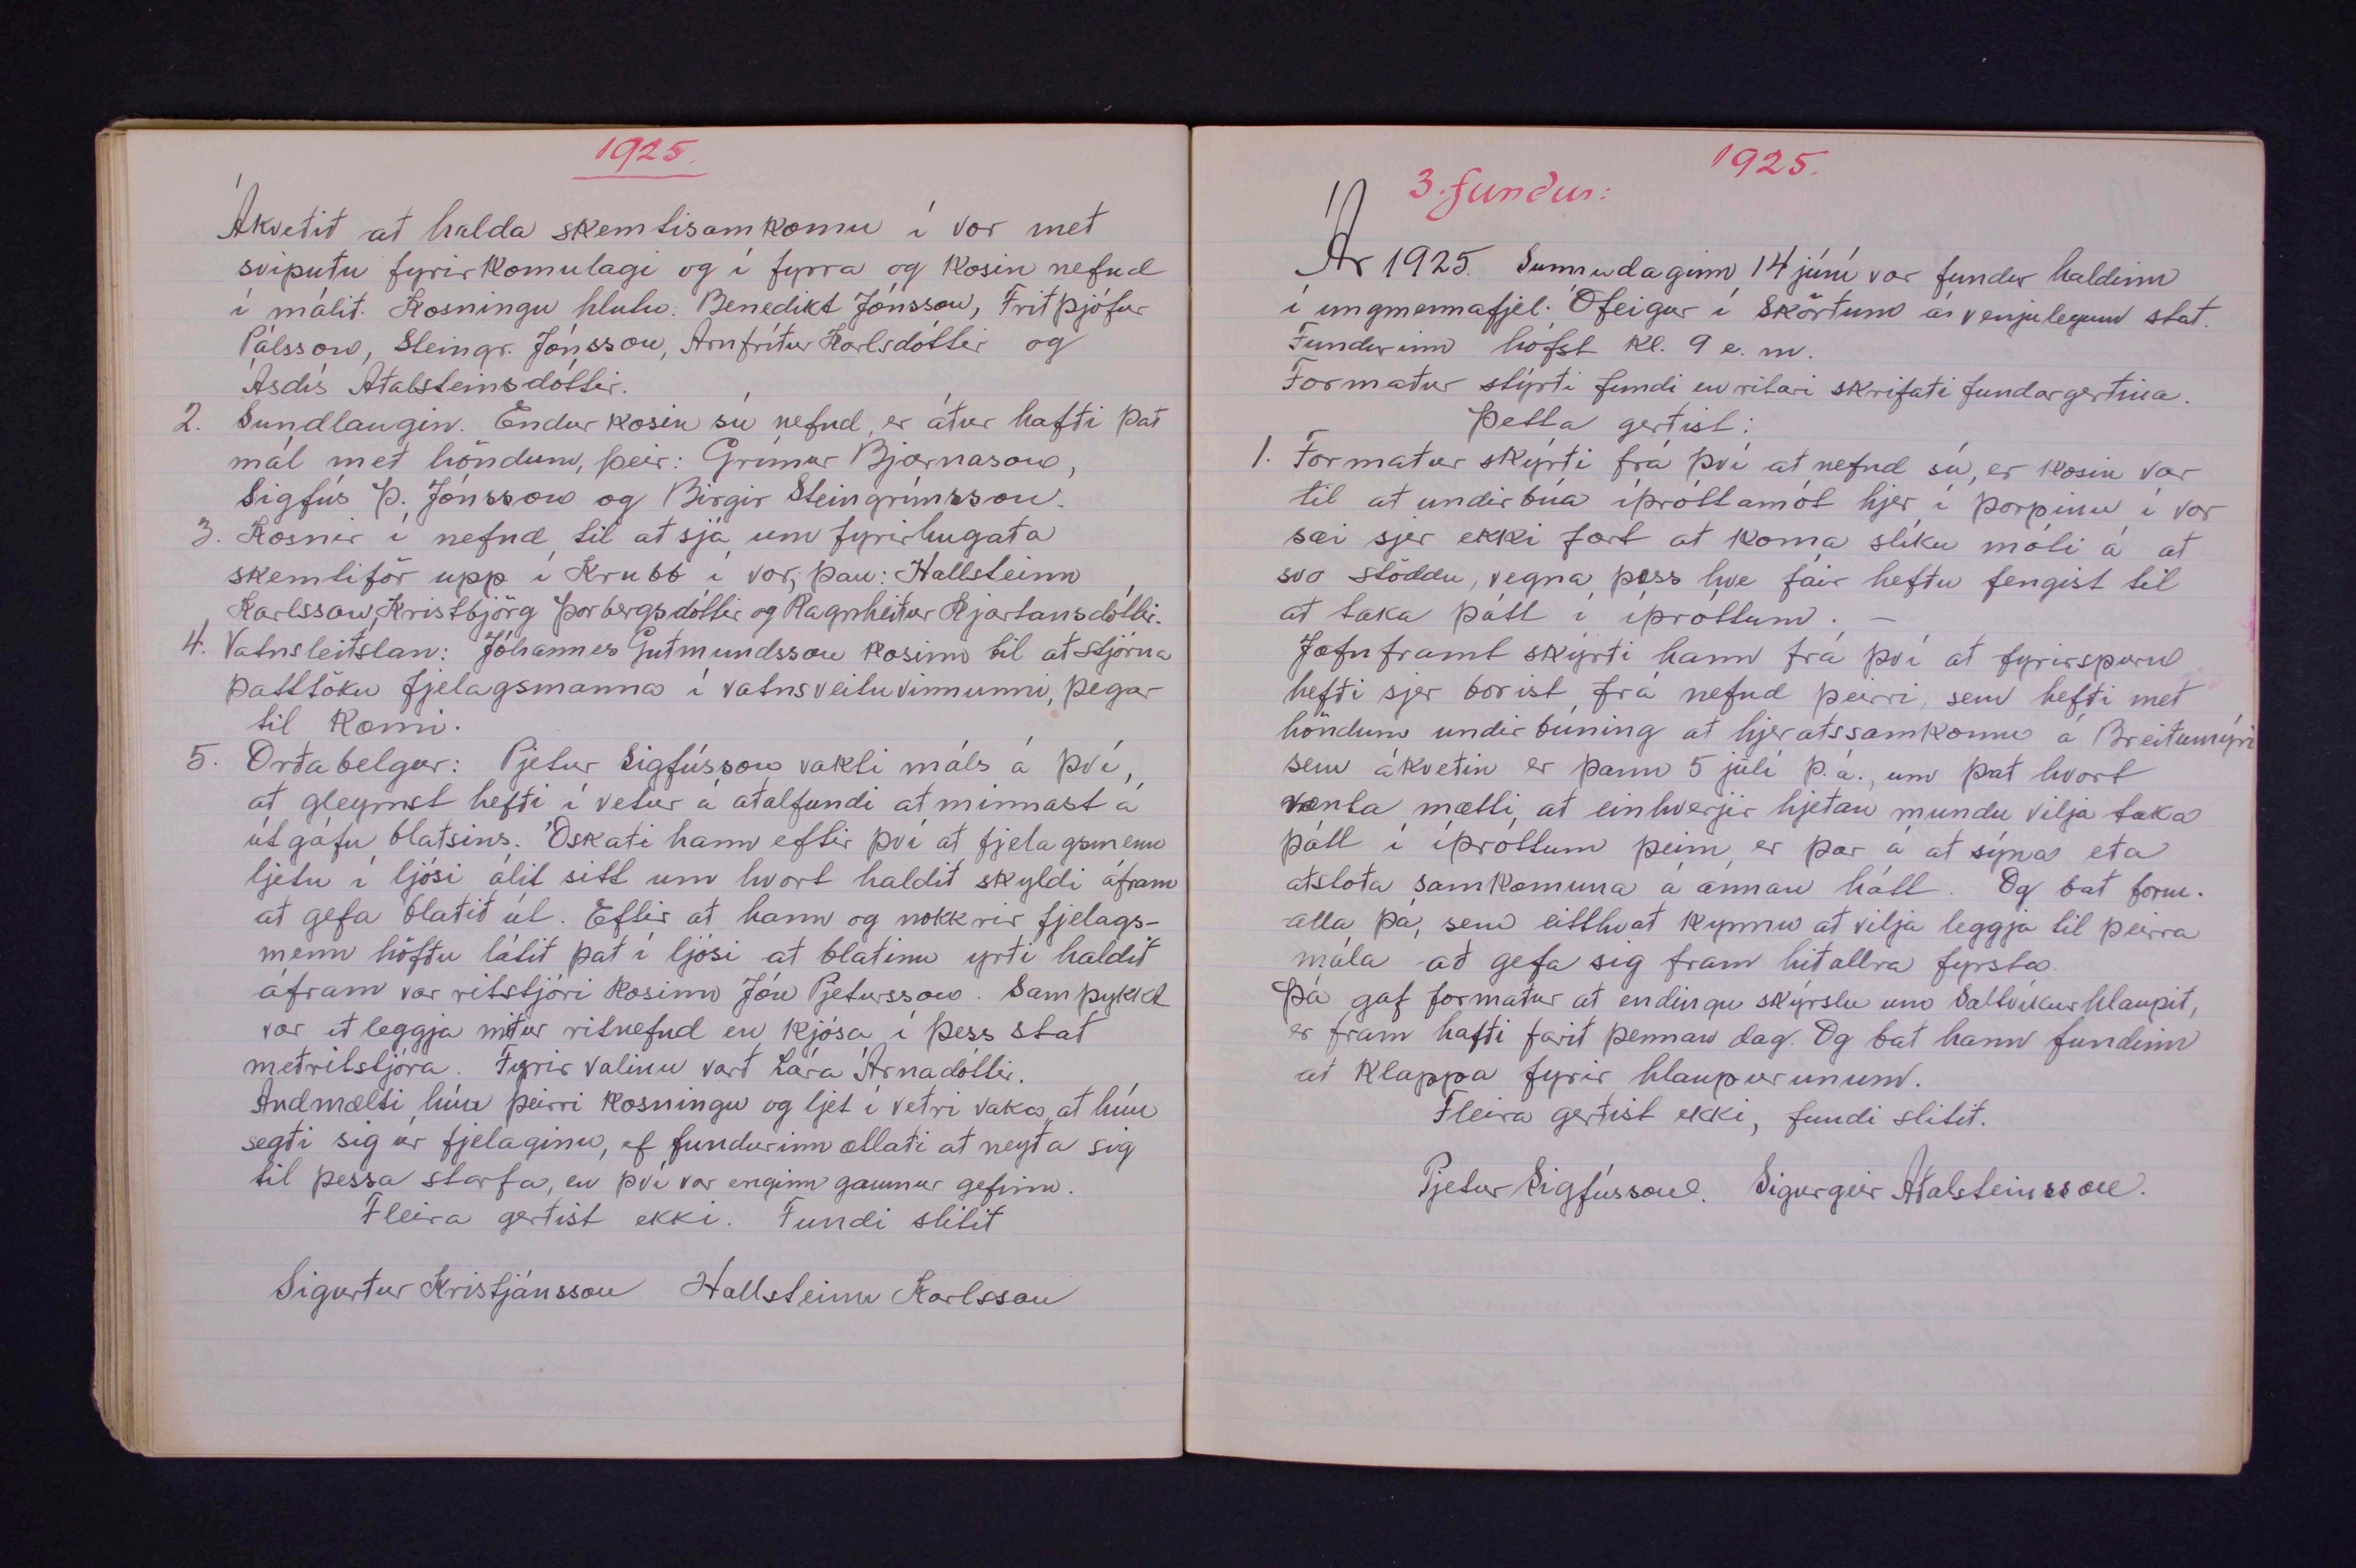 1925.
Ákveðið að halda skemtisamkomu í vor með
svipuðu fyrirkomulagi og í fyrra og kosin nefnd
í málið. Kosningu hlutu: Benedikt Jónsson, Friðþjófur
Pálsson, Steingr. Jónsson, Arnfríður Karlsdóttir og
Ásdís Aðalsteinsdóttir.
2. Sundlaugin. Endurkosin sú nefnd, er áður hafði það
mál með höndum, þeir: Grímur Bjarnason,
Sigfús Þ. Jónsson og Birgir Steingrímsson.
3. Kosnir í nefnd til að sjá um fyrirhugaða
skemtiför upp í Krubb í vor, þau: Hallsteinn
Karlsson, Kristbjörg Þorbergsdóttir og Ragnheiður Kjartansdóttir.
4. Vatnsleiðslan: Jóhannes Guðmundsson kosinn til að stjórna
þátttöku fjelagsmanna í vatnsveituvinnunni, þegar
til kæmi.
5. Orðabelgur: Pjetur Sigfússon vakti máls á því,
að gleymst hefði í vetur á aðalfundi að minnast á
útgáfu blaðsins. Óskaði hann eftir því að fjelagsmenn
ljetu í ljósi álit sitt um hvort haldið skyldi áfram
að gefa blaðið út. Eftir að hann og nokkrir fjelags-
menn höfðu látið það í ljósi að blaðinu yrði haldið
áfram var ritstjóri kosinn Jón Pjetursson. Samþykkt
var að leggja niður ritnefnd en kjósa í þess stað
meðritstjóra. Fyrir valinu varð Lára Árnadóttir.
Andmælti hún þeirri kosningu og ljet í veðri vaka, að hún
segði sig úr fjelaginu, ef fundurinn ætlaði að neyða sig
til þessa starfa, en því var enginn gaumur gefinn.
Fleira gerðist ekki. Fundi slitið
Sigurður Kristjánsson Hallsteinn Karlsson
1925.
3. fundur:
Ár 1925. Sunnudaginn 14 júní var fundur haldinn
í ungmennafjel. Ófeigur í Skörðum á venjulegum stað.
Fundurinn hófst kl. 9 e. m.
Formaður stýrði fundi en ritari skrifaði fundargerðina.
Þetta gerðist:
1. Formaður skýrði frá því að nefnd sú, er kosin var
til að undirbúa íþróttamót hjer í þorpinu í vor
sæi sjer ekki fært að koma slíku móti á að
svo stöddu, vegna þess hve fáir hefðu fengist til
að taka þátt í íþróttum. –
Jafnframt skýrði hann frá því að fyrirspurn
hefði sjer borist frá nefnd þeirri, sem hefði með
höndum undirbúning að hjeraðssamkomu á Breiðumýri
sem ákveðin er þann 5 júlí þ.á., um það hvort
vænta mætti, að einhverjir hjeðan mundu vilja taka
þátt í íþróttum þeim er þar á að sýna eða
aðstoða samkomuna á annan hátt. Og bað form.
alla þá, sem eitthvað kynnu að vilja leggja til þeirra
mála að gefa sig fram hið allra fyrsta.
Þá gaf formaður að endingu skýrslu um Saltvíkurhlaupið,
er fram hafði farið þennan dag. Og bað hann fundinn
að klappa fyrir hlaupurunum.
Fleira gerðist ekki, fundi slitið.
Pjetur Sigfússon. Sigurgeir Aðalsteinsson.